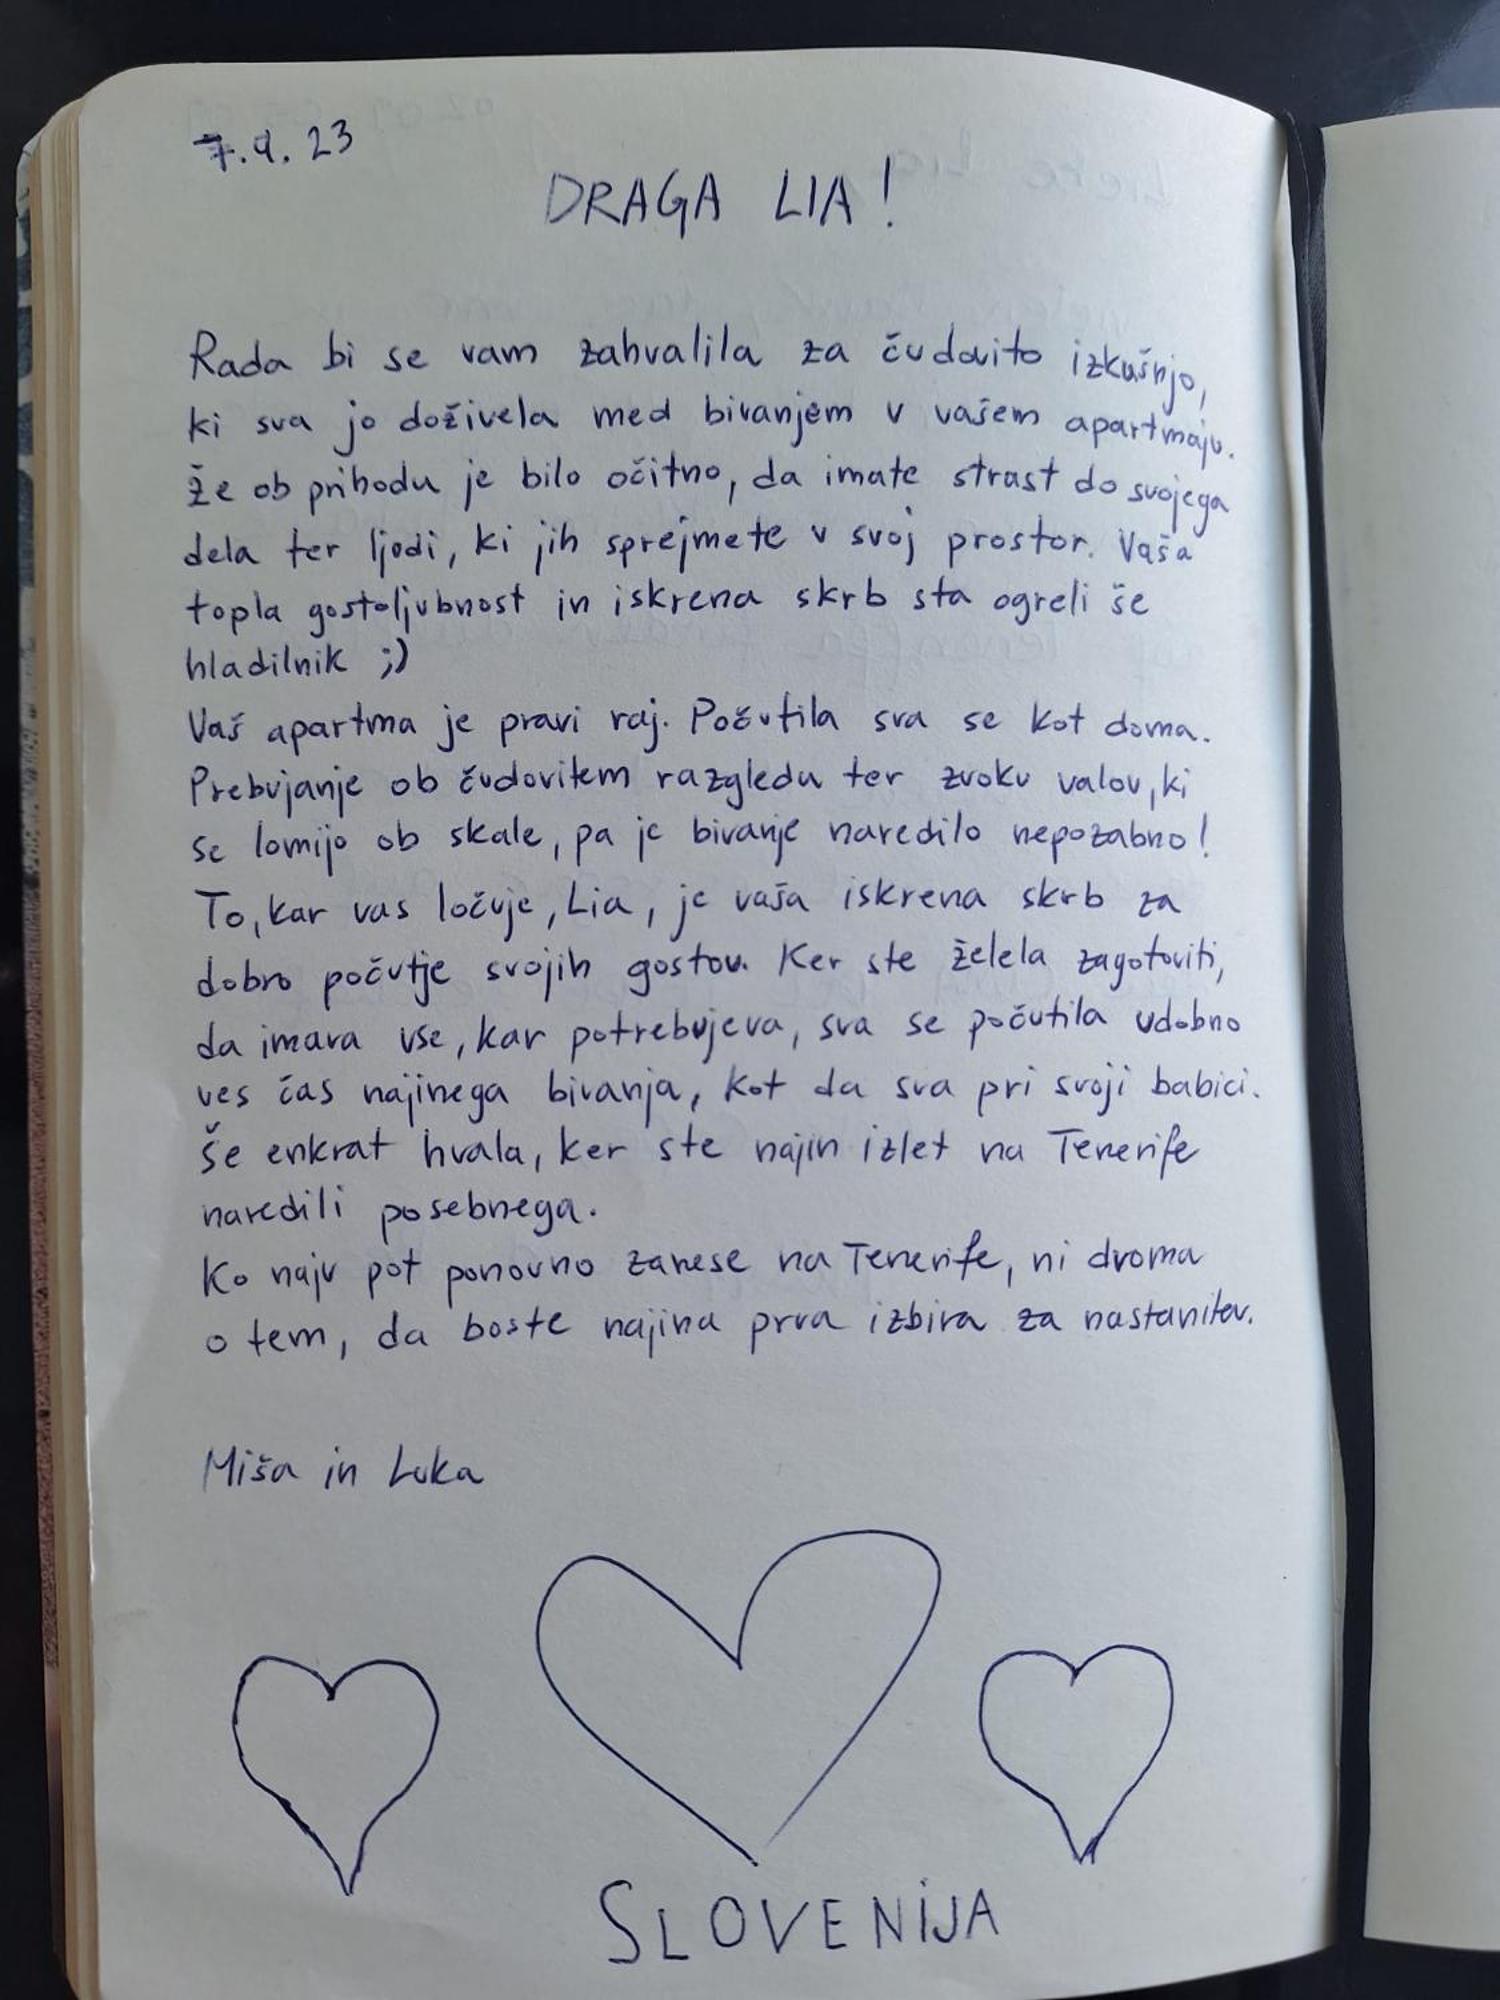 7.9.23
DRAGA LIA!
Rada bi se vam zahvalila za čudovito izkušnjo,
ki sva jo doživela med bivanjem v vašem apartmaju.
Že ob prihodu je bilo očitno, da imate strast do svojega
dela ter ljudi, ki jih sprejmete v svoj prostor. Vaša
topla gostoljubnost in iskrena skrb sta ogreli še
hladilnik ;)
Vaš apartma je pravi raj. Počutila sva se kot doma.
Prebujanje ob čudovitem razgledu ter zvoku valov, ki
se lomijo ob skale, pa je bivanje naredilo nepozabno!
To, kar vas ločuje, Lia, je vaša iskrena skrb za
dobro počutje svojih gostov. Ker ste želela zagotoviti,
da imava vse, kar potrebujeva, sva se počutila udobno
ves čas najinega bivanja, kot da sva pri svoji babici.
Še enkrat hvala, ker ste najin izlet na Tenerife
naredili posebnega.
Ko naju pot ponovno zanese na Tenerife, ni dvoma
o tem, da boste najina prva izbira za nastanitev.
Miša in Luka
SLOVENIJA